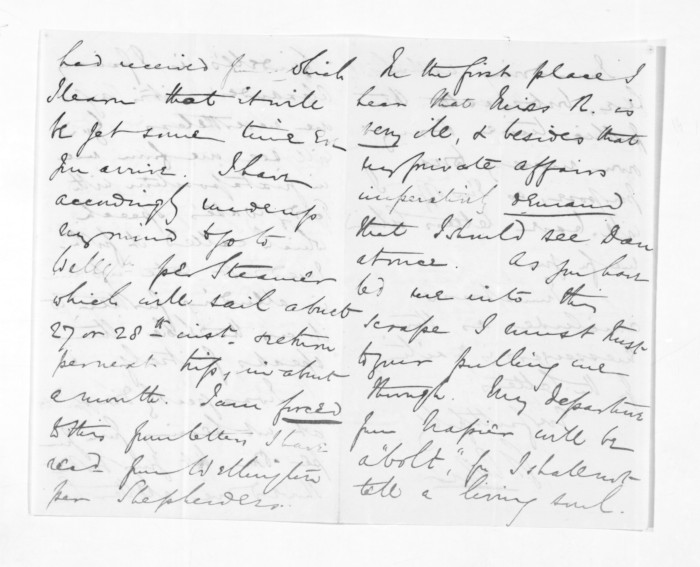 had received from which
I learn that it will
be yet some time ere
you arrive. I have
accordingly made up
my mind to go to
Wellⁿ per Steamer
which will sail about
27 or 28th inst. & return
per next trip, in about
a month. I am forced
to this from letters I have
recd from Wellington
per Shepherdess.
In the first place I
hear that Miss R. is
very ill, & besides that
my private affairs
imperatively demand
that I should see Dan
at once. As you have
led me into this
scrape I must trust
to your pulling me
through. My departure
from Napier will be
a "bolt", for I shall not
tell a living soul.